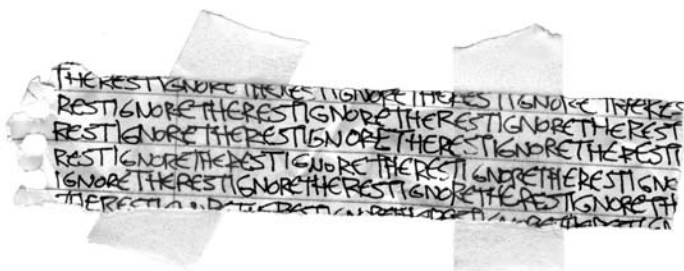 THERESTIGNORETHERESTIGNORETHERESTIGNORETHERES
RESTIGNORETHERESTIGNORETHERESTIGNORETHEREST
RESTIGNORETHERESTIGNORETHERESTIGNORETHERESTI
RESTIGNORETHERESTIGNORETHERESTIGNORETHERESTIGNO
IGNORETHERESTIGNORETHERESTIGNORETHERESTIGNORETH
THERESTIGNORETHERESTIGNORETHERESTIGNORETHERESTIGN